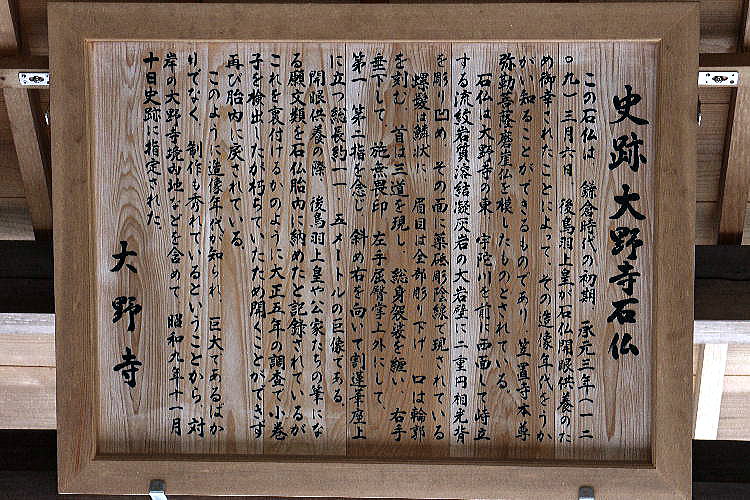 史跡 大野寺石仏
この石仏は 鎌倉時代の初期 承元三年(一二
〇九)三月六日 後鳥羽上皇が石仏開眼供養のた
め御幸されたことによって、その造像年代をうか
がい知ることができるものであり 笠置寺本尊
弥勒菩薩磨崖仏を模したものとされている。
石仏は大野寺の東 宇陀川を前に西面して峙立
する流紋岩質溶結凝灰岩の大岩壁に二重円相光背
を彫り凹め その面に薬研彫陰線で現されている
螺髪は鱗状に 眉目は全部彫り下げ 口は輪郭
を刻む 首は三道を現し 総身袈裟を纏い 右手
垂下して 施無畏印 左手屈臂掌上外にして、
第一 第二指を念じ 斜め右を向いて割蓮華座上
に立つ総長約一一 五メートルの巨像である。
開眼供養の際 後鳥羽上皇や公家たちの筆にな
る願文類を石仏胎内に納めたと記録されているが
これを裏付けるかのように大正五年の調査で小巻
子を検出したが朽ちていたため開くことができず
再び胎内に戻されている。
このように造像年代が知られ 巨大であるばか
りでなく 制作も秀れているということから、対
岸の大野寺境内地などを含めて 昭和九年十一月
十日史跡に指定された。
大野寺